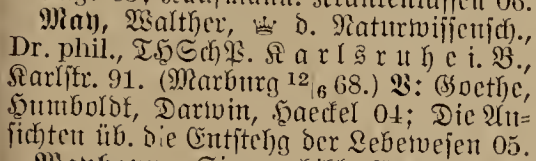 May, Walther, ♕ d. Naturwissensch.,
Dr. phil., THSchP. Karlsruhe i. B.,
Karlstr. 91. (Marburg 12/6 68.) B: Goethe,
Humboldt, Darwin, Haeckel 04; Die An=
sichten üb. die Entstehg der Lebewesen 05.